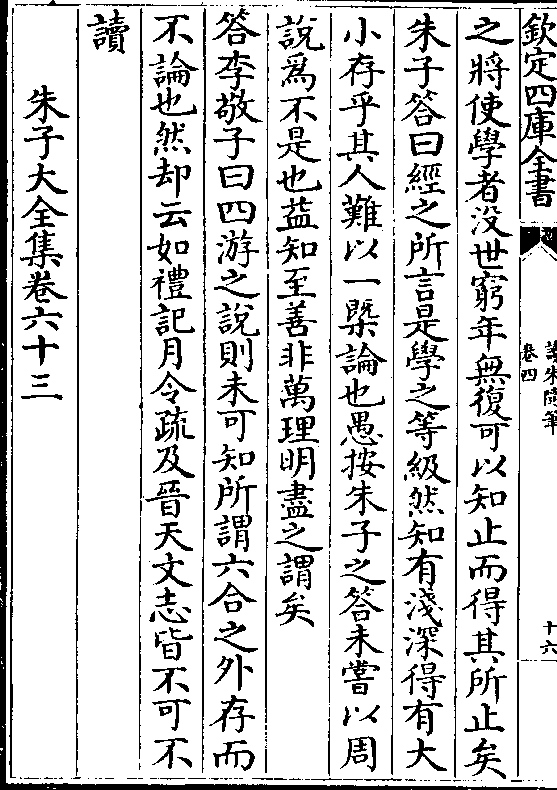 欽定四庫全書
讀朱隨筆
卷四
十六
之將使學者没世窮年無復可以知止而得其所止矣
朱子答曰經之所言是學之等級然知有淺深得有大
小存乎其人難以一槩論也愚按朱子之答未嘗以周
說爲不是也益知至善非萬理明盡之謂矣
答李敬子曰四游之說則未可知所謂六合之外存而
不論也然却云如禮記月令疏及晉天文志皆不可不
讀
朱子大全集卷六十三